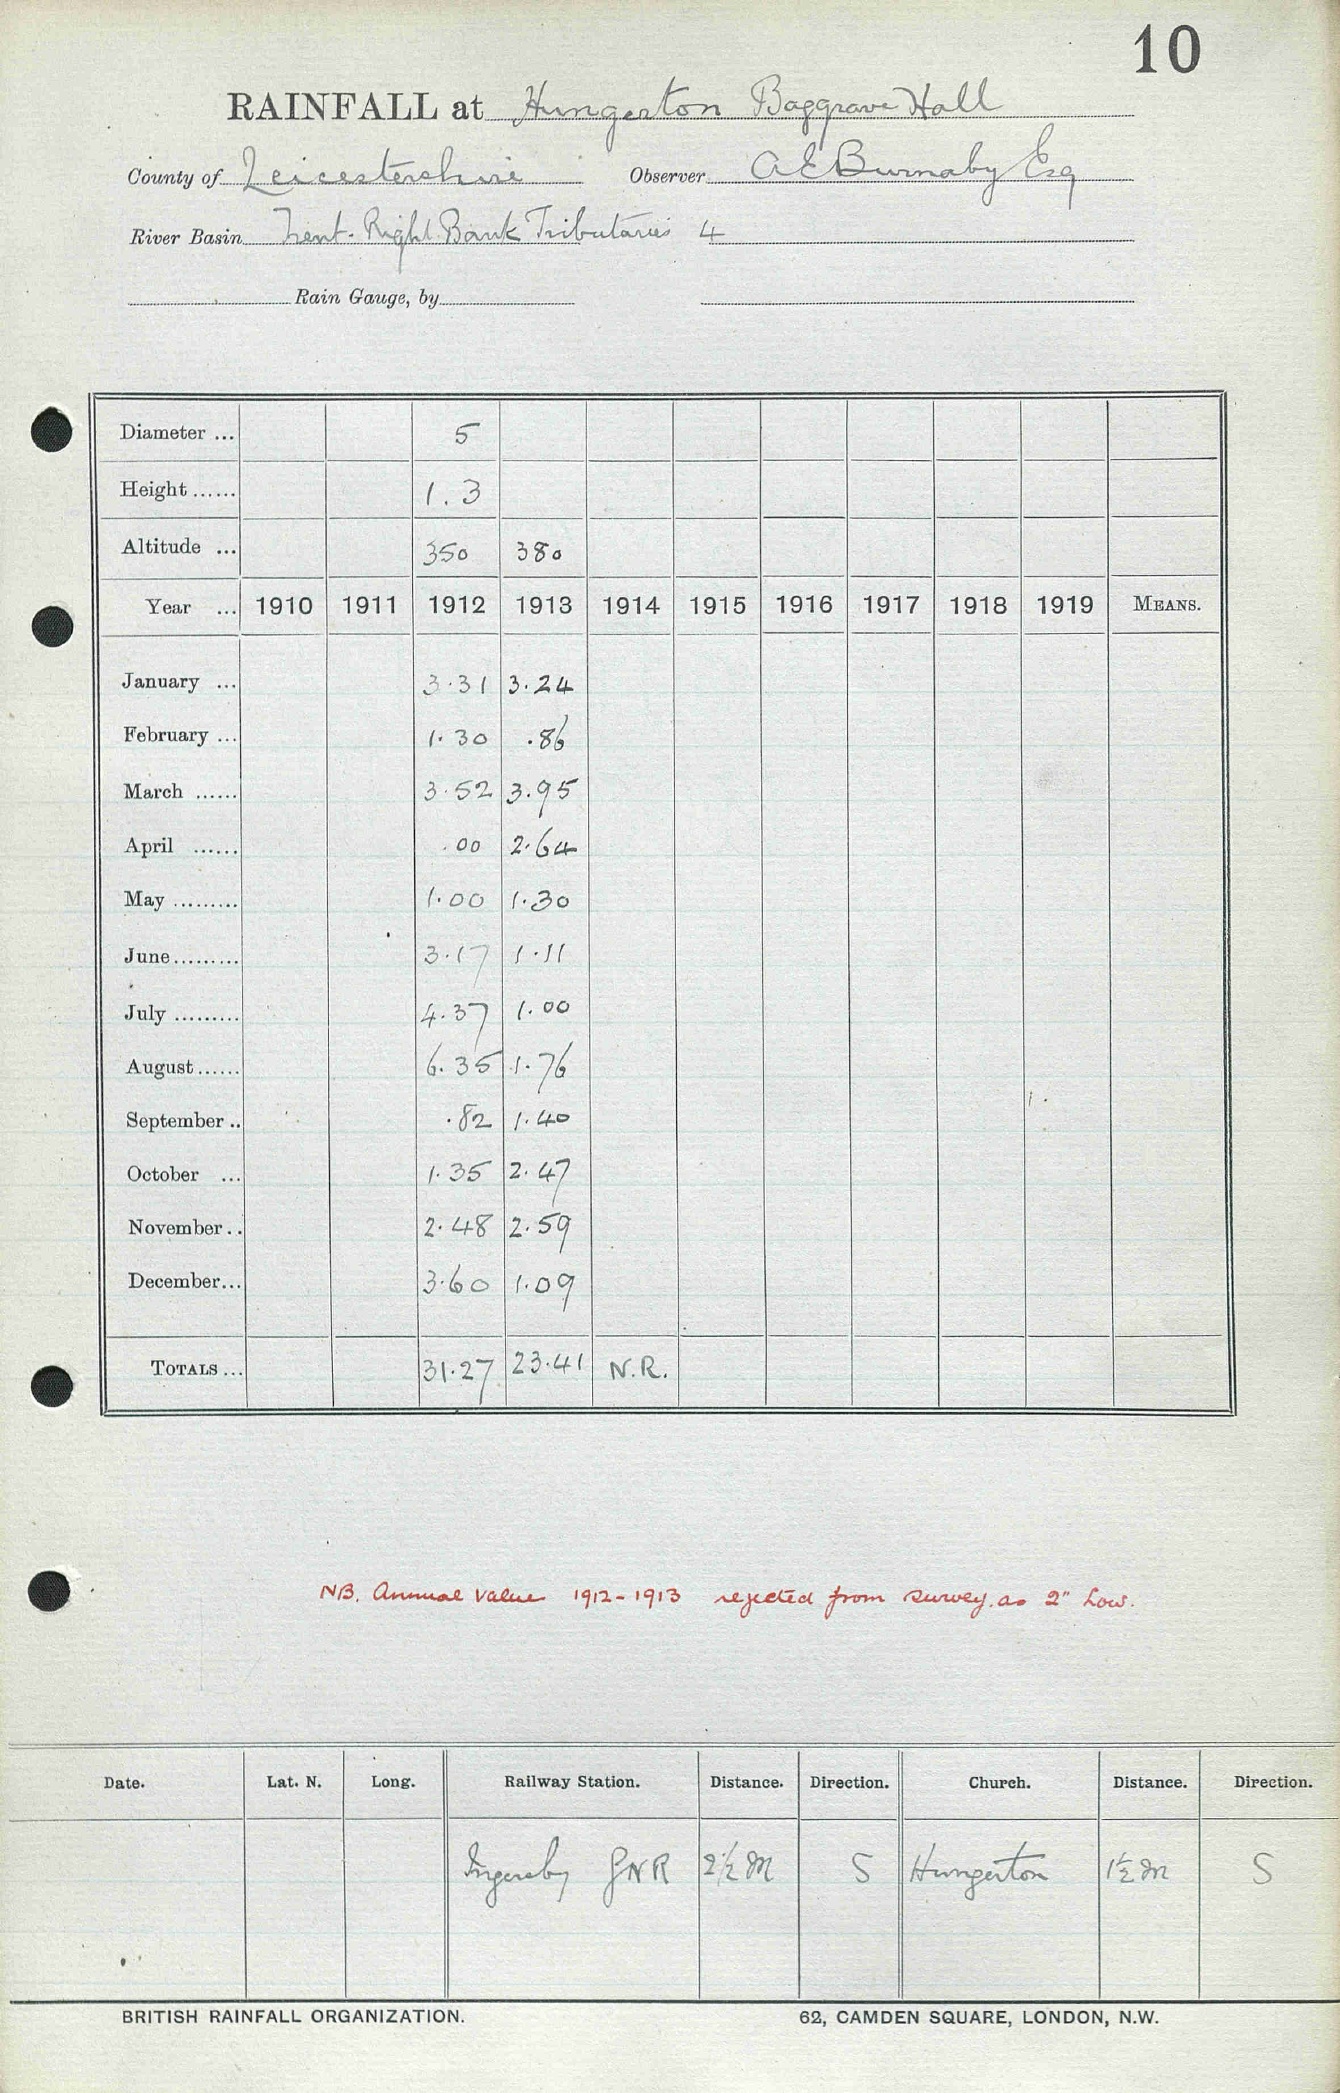 10
RAINFALL at Hungerton Baggrave Hall
County of Leicestershire Observer A E Burnaby Esq
River Basin Trent-Right Bank Tributaries 4
Rain Gauge, by
Diameter ... 5
Height ...... 1.3
Altitude ... 350 380
Year ... 1910 1911 1912 1913 1914 1915 1916 1917 1918 1919 MEANS.
January ... 3.31 3.24
February ... 1.30 .86
March ...... 3.52 3.95
April ...... .00 2.64
May ......... 1.00 1.30
June......... 3.17 1.11
July ......... 4.37 1.00
August...... 6.35 1.76
September .. .82 1.40
October ... 1.35 2.47
November.. 2.48 2.59
December... 3.60 1.09
TOTALS ... 31.27 23.41 N.R.
NB. Annual Value 1912-1913 rejected from survey. as 2" Low.
Date. Lat. N. Long. Railway Station. Distance. Direction. Church. Distance. Direction.
Ingersby GNR 2½ M S Hungerton 1½ M S
BRITISH RAINFALL ORGANIZATION. 62, CAMDEN SQUARE, LONDON, N.W.